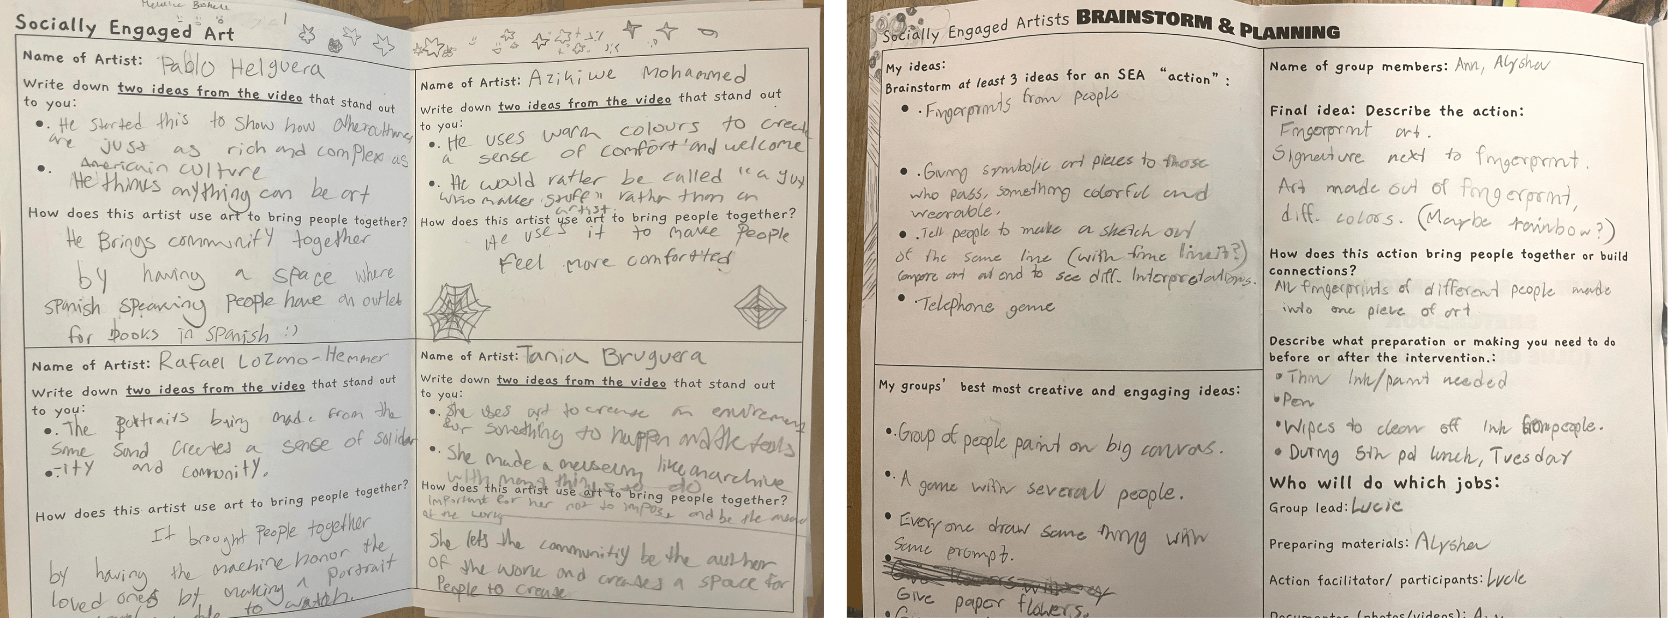 Socially Engaged Art
Name of Artist: Pablo Helguera
Write down two ideas from the video that stand out
to you:
• He started this to show how other cultures
are just as rich and complex as
Americain culture
• He thinks anything can be art
How does this artist use art to bring people together?
He Brings community together
by having a space where
spanish speaking people have an outlet
for books in spanish :)
Name of Artist: Aziki we Mohammed
Write down two ideas from the video that stand out
to you:
• He uses warm colours to create
a sense of comfort and welcome
• He would rather be called "a guy
who makes stuff" rather than an
artist.
How does this artist use art to bring people together?
He uses it to make people
feel more comfortted
Name of Artist: Rafael Lozano-Hemmer
Write down two ideas from the video that stand out
to you:
• The portraits being made from the
same sand created a sense of solidar
• -ity and comunity.
How does this artist use art to bring people together?
It brought people together
by having the machine honor the
loved ones by making a portrait
to watch.
Name of Artist: Tania Bruguera
Write down two ideas from the video that stand out
to you:
• She uses art to create an enviremen
for something to happen and the tools
• She made a meuseum like anarchive
with many things to do
How does this artist use art to bring people together?
important for her not to impose and be the
of the work
She lets the communitiy be the author
of the work and creates a space for
People to create
Socially Engaged Artists BRAINSTORM & PLANNING
My ideas:
Brainstorm at least 3 ideas for an SEA "action":
• Fingerprints from people
• Giving symbolic art pieces to those
who pass, something colorful and
wearable.
• Tell people to make a sketch out
of the same line (with time limit?)
compare art at end to see diff. Interpretations.
• Telephone game
My groups' best most creative and engaging ideas:
• Group of people paint on big canvas.
• A game with several people.
• Everyone draw same thing with
same prompt.
Give paper flowers.
Name of group members: Ann, Alysha
Final idea: Describe the action:
Fingerprint art.
Signature next to fingerprint.
Art made out of fingerprint,
diff. colors. (Maybe rainbow?)
How does this action bring people together or build
connections?
All fingerprints of different people made
into one piece of art
Describe what preparation or making you need to do
before or after the intervention.:
• Thin Ink/paint needed
• Pen
• Wipes to clean off ink from people.
• During 5th pd lunch, Tuesday
Who will do which jobs:
Group lead: Lucie
Preparing materials: Alysha
Action facilitator/ participants: Lucie
Documenter (photos/videos):